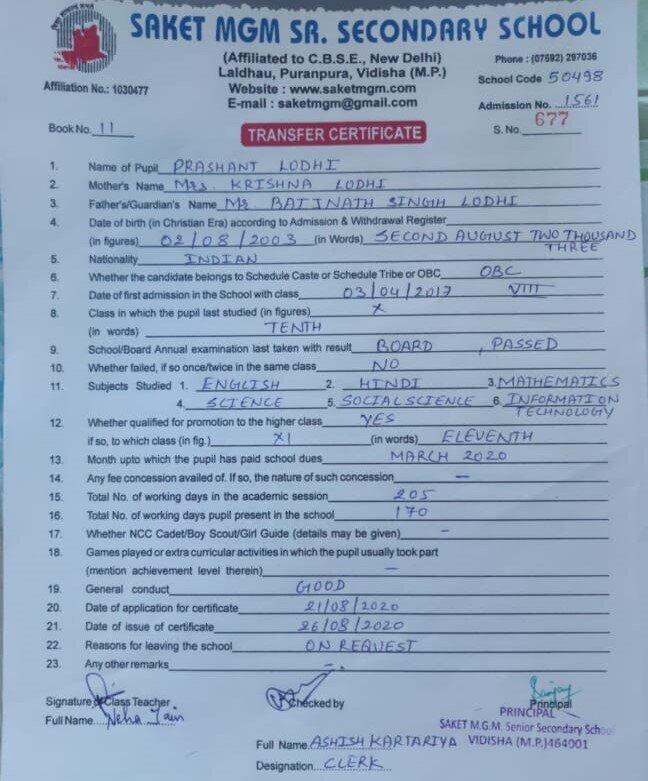 SAKET MGM SR. SECONDARY SCHOOL
(Affiliated to C.B.S.E., New Delhi)
Phone : (07592) 297036
Laldhau, Puranpura, Vidisha (M.P.)
School Code 50498
Affiliation No.: 1030477
Website : www.saketmgm.com
E-mail : saketmgm@gmail.com
Admission No. 1561
Book No. 11
TRANSFER CERTIFICATE
S. No. 677
1. Name of Pupil PRASHANT LODHI
2. Mother's Name Mrs. KRISHNA LODHI
3. Father's/Guardian's Name Mr. BAIJNATH SINGH LODHI
4. Date of birth (in Christian Era) according to Admission & Withdrawal Register
(in figures) 02/08/2003 (in Words) SECOND AUGUST TWO THOUSAND THREE
5. Nationality INDIAN
6. Whether the candidate belongs to Schedule Caste or Schedule Tribe or OBC OBC
7. Date of first admission in the School with class 03/04/2017 VIII
8. Class in which the pupil last studied (in figures) X
(in words) TENTH
9. School/Board Annual examination last taken with result BOARD , PASSED
10. Whether failed, if so once/twice in the same class NO
11. Subjects Studied 1. ENGLISH 2. HINDI 3. MATHEMATICS
4. SCIENCE 5. SOCIAL SCIENCE 6. INFORMATION TECHNOLOGY
12. Whether qualified for promotion to the higher class YES
if so, to which class (in fig.) XI (in words) ELEVENTH
13. Month upto which the pupil has paid school dues MARCH 2020
14. Any fee concession availed of. If so, the nature of such concession —
15. Total No. of working days in the academic session 205
16. Total No. of working days pupil present in the school 170
17. Whether NCC Cadet/Boy Scout/Girl Guide (details may be given) —
18. Games played or extra curricular activities in which the pupil usually took part
(mention achievement level therein) —
19. General conduct GOOD
20. Date of application for certificate 21/08/2020
21. Date of issue of certificate 26/08/2020
22. Reasons for leaving the school ON REQUEST
23. Any other remarks —
Signature of Class Teacher
Checked by
Sanjay
Principal
Full Name Neha Jain
PRINCIPAL
SAKET M.G.M. Senior Secondary School
Full Name ASHISH KARTARIYA
VIDISHA (M.P.)464001
Designation CLERK